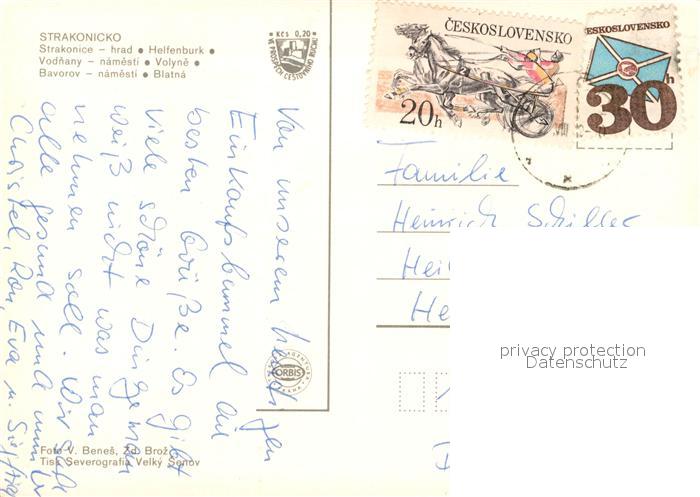 STRAKONICKO
Strakonice – hrad • Helfenburk •
Vodňany – náměstí • Volyně •
Bavorov – náměstí • Blatná
Kčs 0,20
VE PROSPĚCH CESTOVNÍHO RUCHU
ČESKOSLOVENSKO
20h
ČESKOSLOVENSKO
30h
Von unserem heutigen
Einkaufsbummel die
besten Grüße. Es gibt
viele schöne Dinge, man
weiß nicht was man
nehmen soll. Wir sind
alle gesund und munter
Christel, Ron, Eva u.
Familie
Heinrich Schiller
Hei
He
ORBIS
PRAHA
privacy protection
Datenschutz
Foto V. Beneš, Zd. Brož
Tisk Severografia Velký Šenov